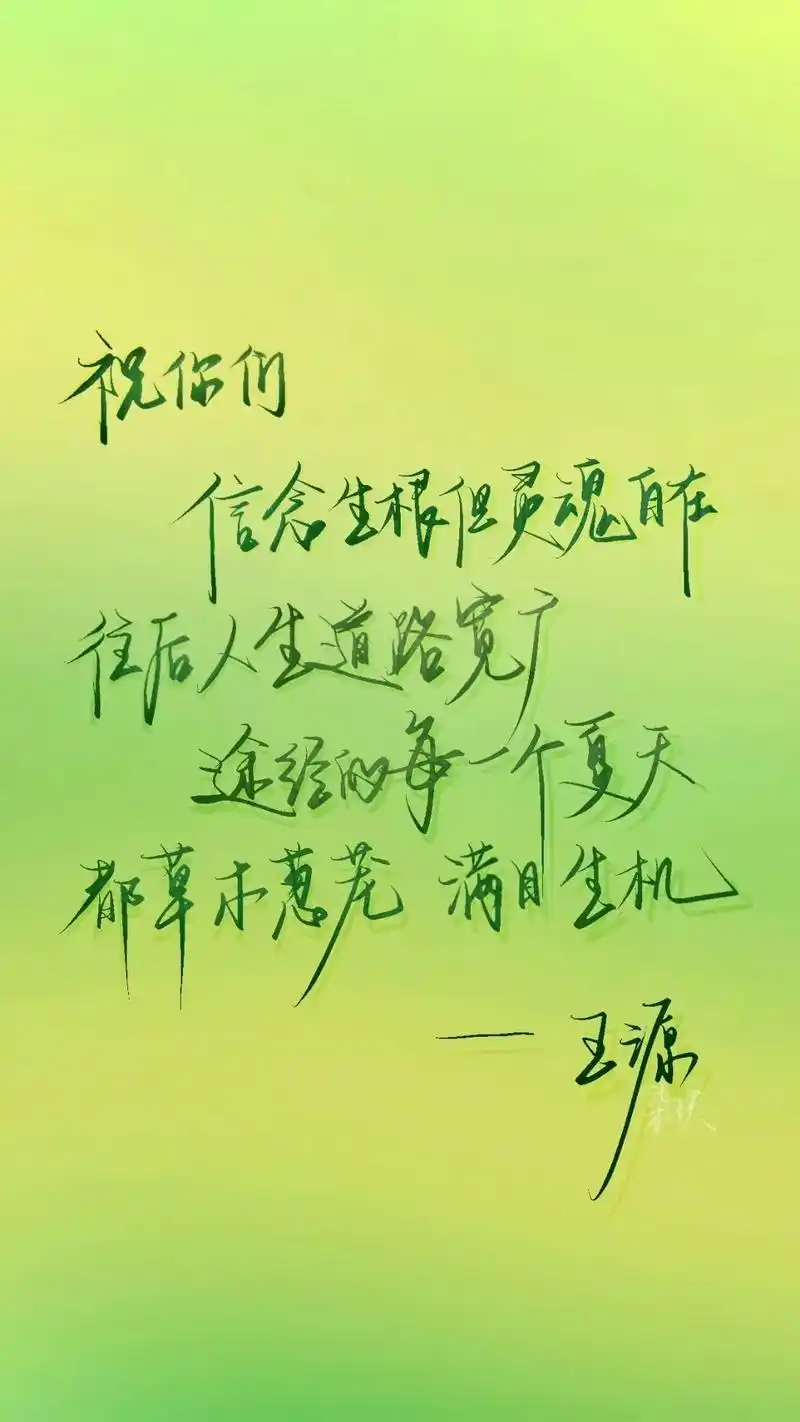 祝你们
信念生根但灵魂自在
往后人生道路宽广
途经的每一个夏天
都草木葱茏 满目生机
—— 王源